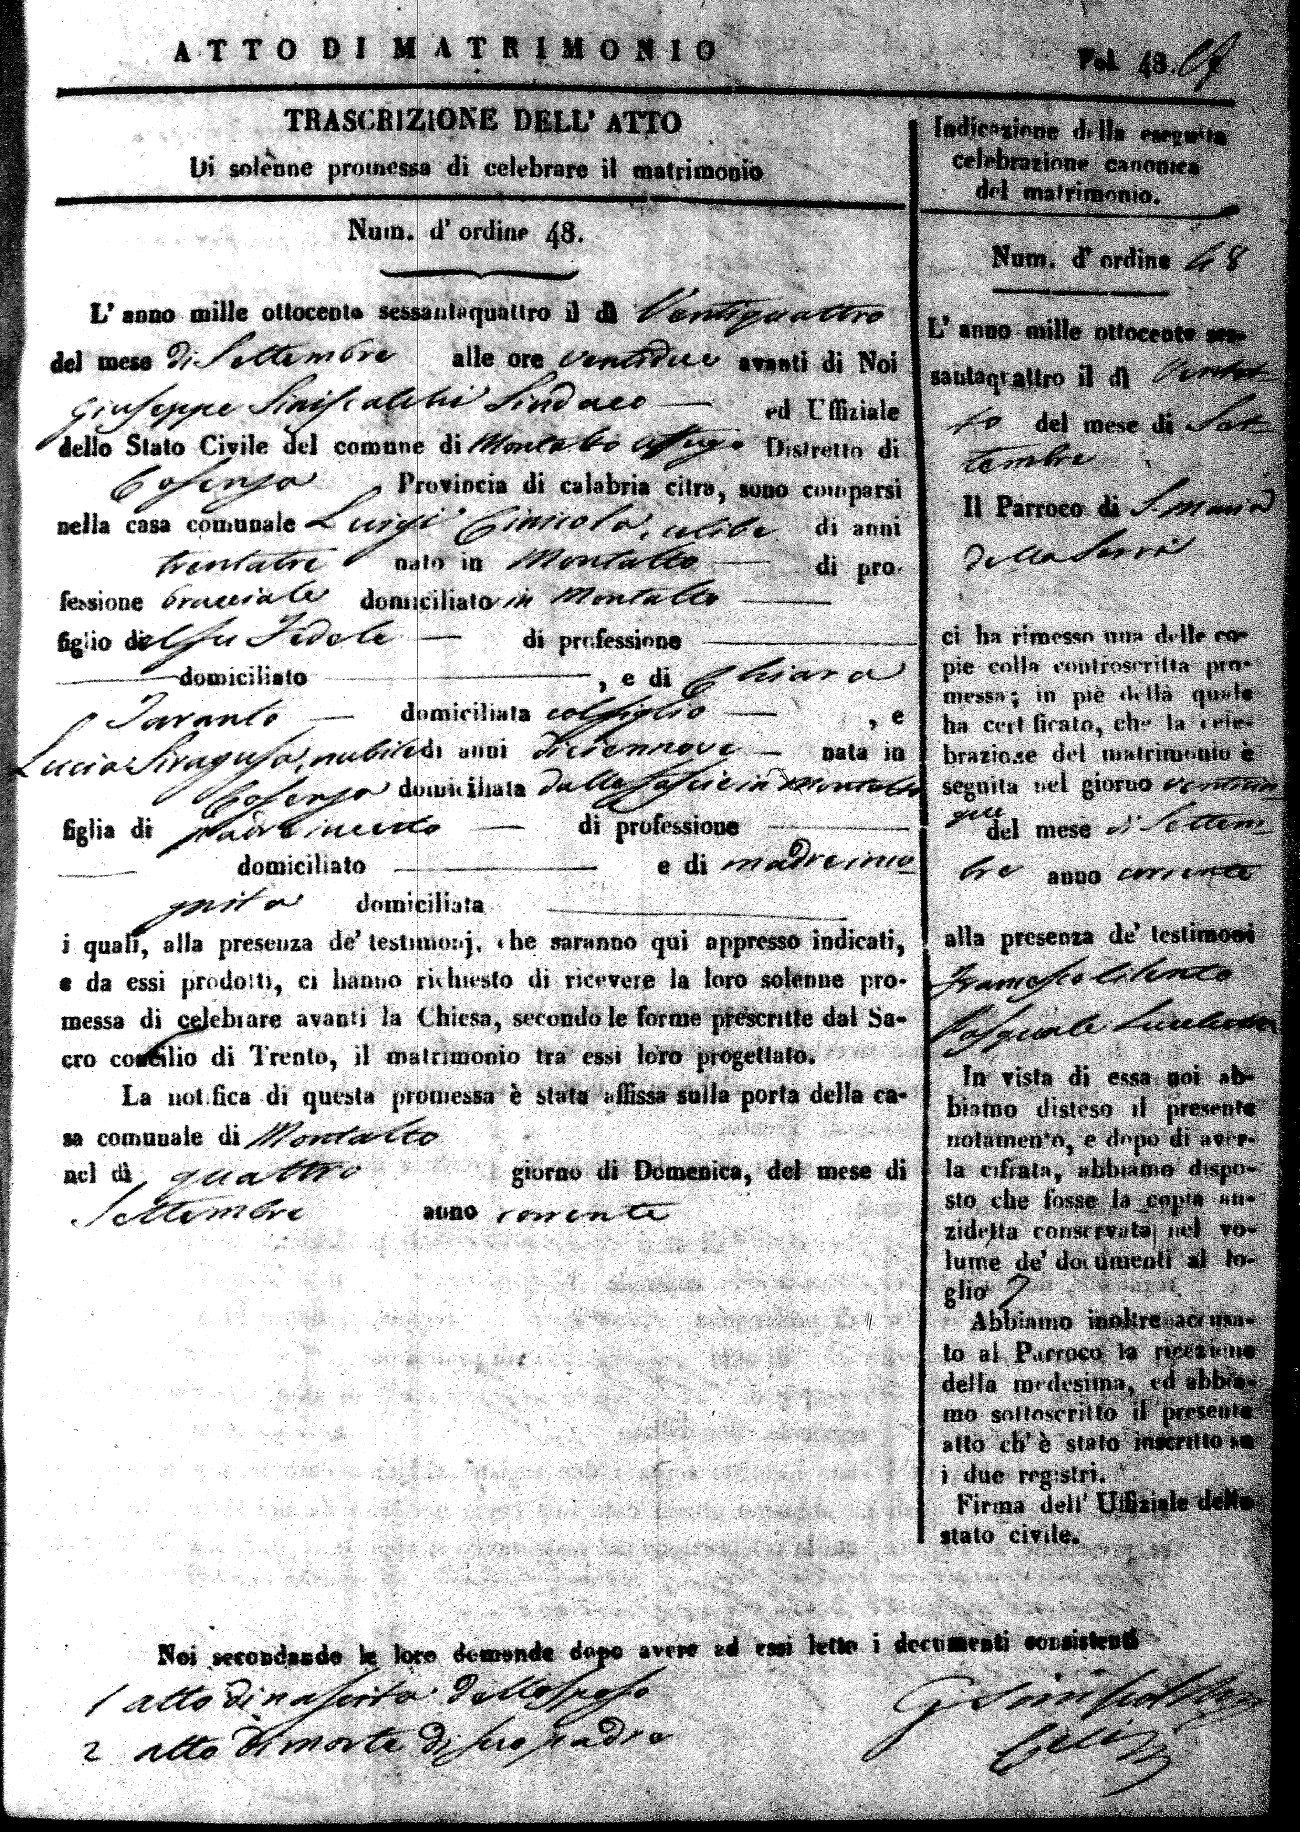 ATTO DI MATRIMONIO
Fol. 48.
TRASCRIZIONE DELL' ATTO
Di solenne promessa di celebrare il matrimonio
Num. d' ordine 48.
L' anno mille ottocento sessantaquattro il dì Ventiquattro
del mese di Settembre alle ore ventidue avanti di Noi
Giuseppe Siniscalchi Sindaco ed Uffiziale
dello Stato Civile del comune di Montalto Uffugo Distretto di
Cosenza Provincia di calabria citra, sono comparsi
nella casa comunale Luigi celibe di anni
trentatre nato in Montalto di pro-
fessione bracciale domiciliato in Montalto
figlio del fu Fedele di professione
domiciliato , e di Chiara
Taranto domiciliata col figlio , e
Lucia Siragusa, nubile di anni diciennove nata in
Cosenza domiciliata dalla fascie in Montalto
figlia di padre incerto di professione
domiciliato e di madre inco
gnita domiciliata
i quali, alla presenza de' testimonj, che saranno qui appresso indicati,
e da essi prodotti, ci hanno richiesto di ricevere la loro solenne pro-
messa di celebrare avanti la Chiesa, secondo le forme prescritte dal Sa-
cro concilio di Trento, il matrimonio tra essi loro progettato.
La notifica di questa promessa è stata affissa sulla porta della ca-
sa comunale di Montalto
nel dì quattro giorno di Domenica, del mese di
Settembre anno corrente
Noi secondando le loro domande dopo avere ad essi letto i documenti consistenti
1 atto di nascita dello sposo
2 atto di morte di suo padre
Indicazione della eseguita
celebrazione canonica
del matrimonio.
Num. d' ordine 48
L' anno mille ottocento ses-
santaquattro il dì Ventot
to del mese di Set
tembre
Il Parroco di S. Maria
della Serra
ci ha rimesso una delle co-
pie colla controscritta pro-
messa; in piè della quale
ha certificato, che la cele-
brazione del matrimonio è
seguita nel giorno venticin
que
del mese di Settem
bre anno corrente
alla presenza de' testimoni
Francesco
Pasquale
In vista di essa noi ab-
biamo disteso il presente
notamento, e dopo di aver-
la cifrata, abbiamo dispo-
sto che fosse la copia an-
zidetta conservata nel vo-
lume de' documenti al fo-
glio 7
Abbiamo inoltre accusa-
to al Parroco la ricezione
della medesima, ed abbia-
mo sottoscritto il presente
atto ch' è stato inscritto su
i due registri.
Firma dell' Uffiziale dello
stato civile.
G Siniscalchi